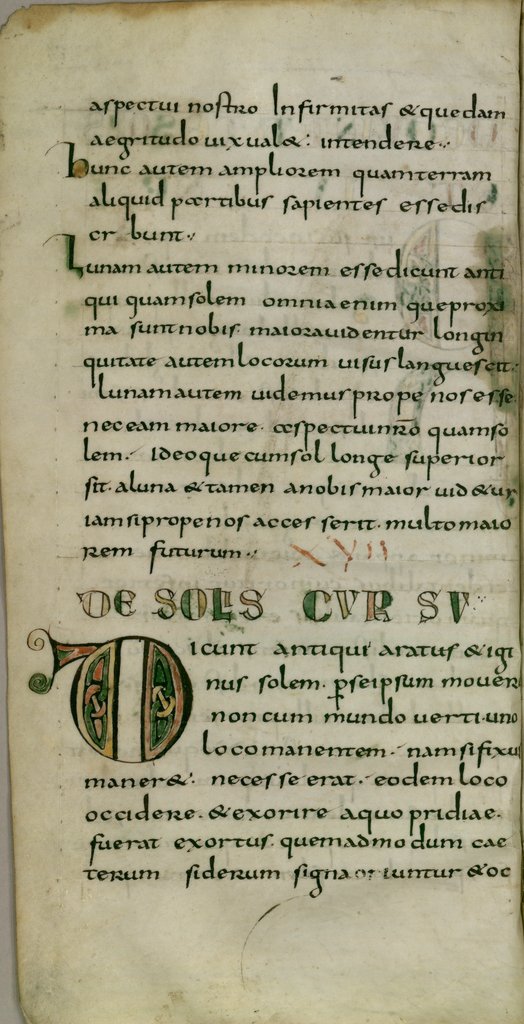 aspectui nostro Infirmitas & quedam
aegritudo uix ual& intendere
hunc autem ampliorem quam terram
aliquid partibus sapientes esse dis
cr bunt
Lunam autem minorem esse dicunt anti
qui quam solem omnia enim que proxi
ma sunt nobis maiora uidentur longin
quitate autem locorum uisus languescit
lunam autem uidemus prope nos esse
nec eam maiore aspectui nro quam so
lem. Ideoque cum sol longe superior
sit. a luna & tamen a nobis maior uid&ur
iam si prope nos accesserit. multo maio
rem futurum
XVII
DE SOLIS CURSU
Dicunt antiqui aratus & igi
nus solem. p seipsum mouer
non cum mundo uerti uno
loco manentem. nam si fixu
maner&. necesse erat. eodem loco
occidere. & exorire a quo pridiae.
fuerat exortus. quemadmodum cae
terum siderum signa oriuntur & oc